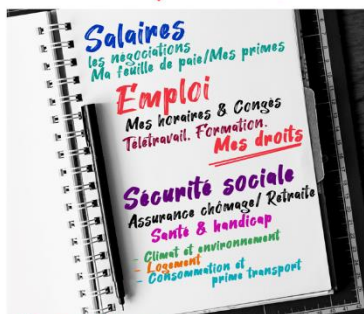 Salaires
les négociations
Ma feuille de paie/Mes primes
Emploi
Mes horaires & Congés
Télétravail. Formation.
Mes droits
Sécurité sociale
Assurance chômage/ Retraite
Santé & handicap
- Climat et environnement
- Logement
- Consommation et
prime transport